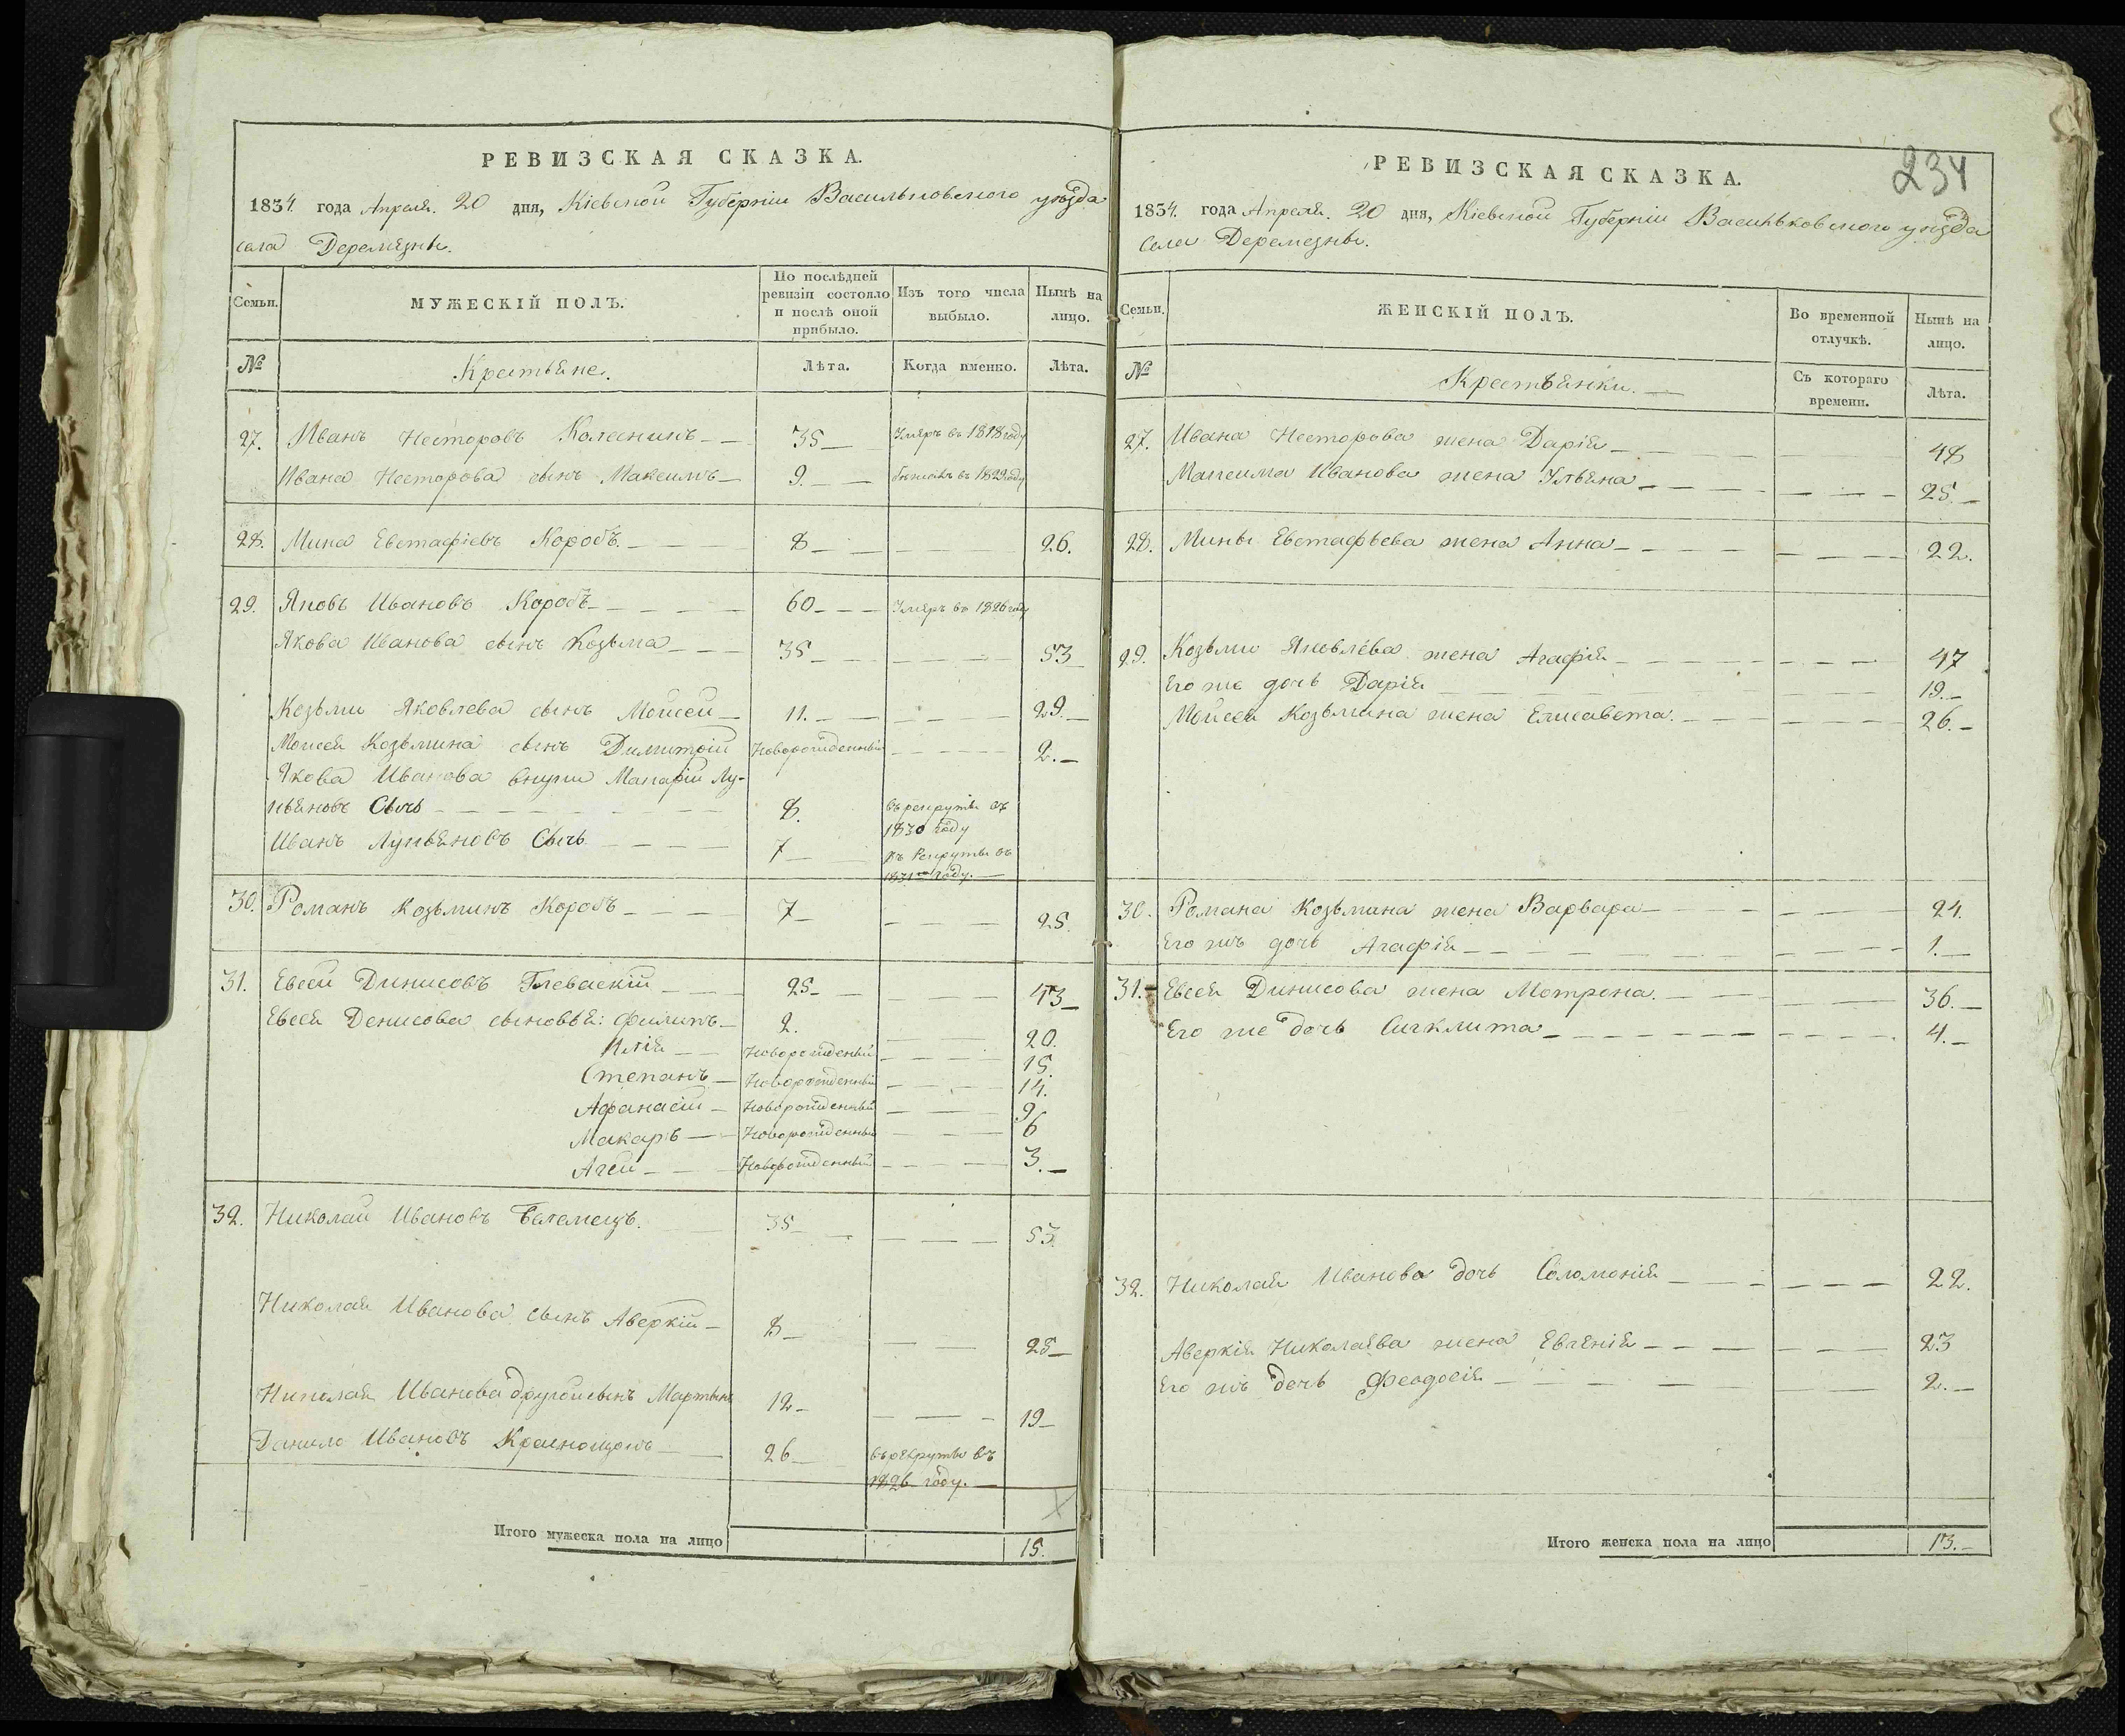 РЕВИЗСКАЯ СКАЗКА.
1834. года Апреля. 20 дня, Кіевской Губерніи Васильковского уѣзда
села Деремезны.
Семьи.
МУЖЕСКІЙ ПОЛЪ.
По послѣдней ревизіи состояло и послѣ оной прибыло.
Изъ того числа выбыло.
Нынѣ на лицо.
№
Крестьяне.
Лѣта.
Когда именно.
Лѣта.
27. Иванъ Несторовъ Колесникъ 35 Умеръ въ 1818 году
Ивана Несторова сынъ Максимъ 9. въ 1829 году
28. Мина Евстафіевъ Коробъ. 8 26.
29. Яковъ Ивановъ Коробъ 60 Умеръ въ 1826 году
Якова Иванова сынъ Козьма 35 53
Козьми Яковлева сынъ Мойсей 11. 29.
Моисея Козьмина сынъ Димитрій Новорожденный 2.
Якова Иванова внуки Макарій Лу-
кьяновъ Сычъ 8. въ рекруты въ
1830 году
Иванъ Лукьяновъ Сычъ 7 въ Рекруты въ
1831 году.
30. Романъ Козьминъ Коробъ 7 25.
31. Евсей Динисовъ Глеваскій 25 43
Евсея Денисова сыновья: Филипъ 2. 20.
Илія Новорожденый 15.
Степанъ Новорожденный 14.
Афанасій Новорожденный 9
Макаръ Новорожденный 6
Агей Новорожденный 3.
32. Николай Ивановъ 35 53.
Николая Иванова сынъ Аверкій 8 25
Николая Иванова другой сынъ Мартинъ 12 19
Данило Ивановъ 26 въ рекруты въ
1826 году.
Итого мужеска пола на лицо 15.
234
РЕВИЗСКАЯ СКАЗКА.
1834. года Апреля. 20 дня, Кіевской Губерніи Васильковского уѣзда
села Деремезны.
Семьи.
ЖЕНСКІЙ ПОЛЪ.
Во временной отлучкѣ.
Нынѣ на лицо.
№
Крестьянки.
Съ котораго времени.
Лѣта.
27. Ивана Несторова жена Дарія 48
Максима Иванова жена Ульяна 25.
28. Мины Евстафьева жена Анна 22.
29. Козьми Яковлева жена Агафія 47
Его же дочь Дарія 19.
Мойсея Козьмина жена Елисавета. 26.
30. Романа Козьмина жена Варвара 24.
Его жъ дочь Агафія 1.
31. Евсея Динисова жена Мотрона. 36.
Его же дочь 4.
32. Николая Иванова дочь Соломонія 22.
Аверкія Николаева жена Евгенія 23
Его жъ дочь Феодосія 2.
Итого женска пола на лицо 13.